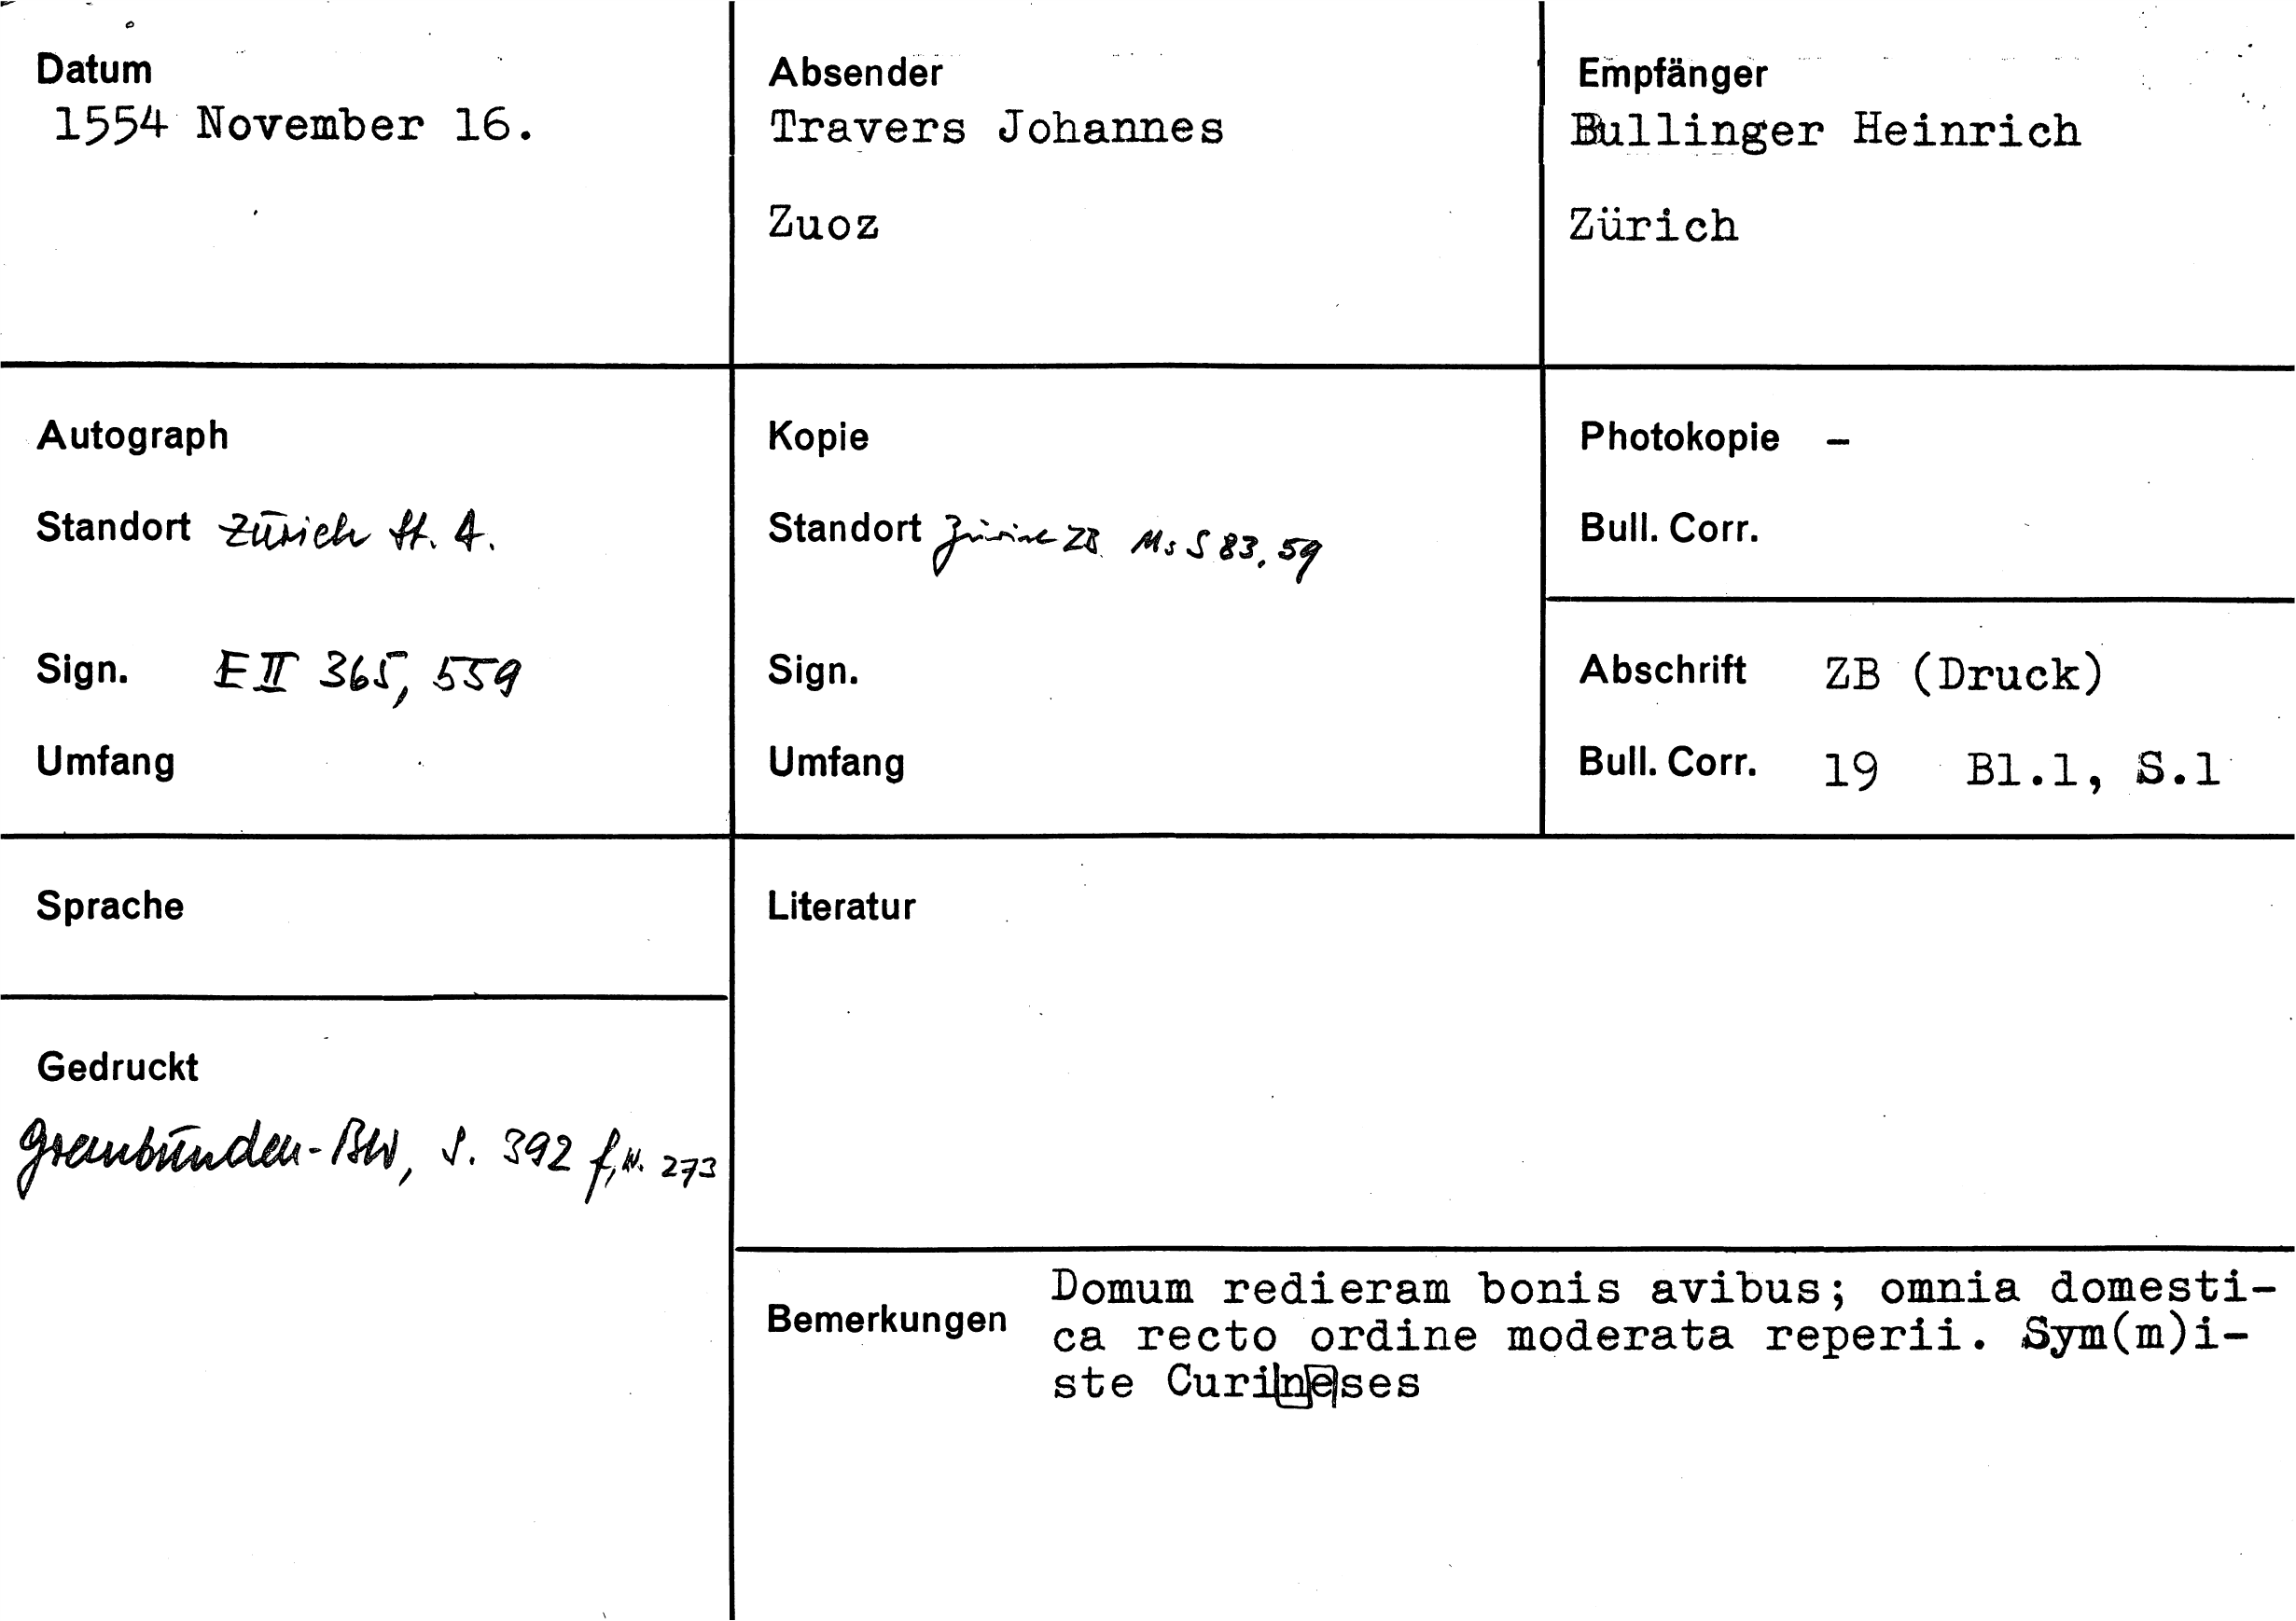 Datum
1554 November 16.
Absender
Travers Johannes
Zuoz
Empfänger
Bullinger Heinrich
Zürich
Autograph
Standort Zürich St. A.
Sign. E II 365, 559
Umfang
Kopie
Standort Zürich ZB Ms S 83, 59
Sign.
Umfang
Photokopie –
Bull. Corr.
Abschrift ZB (Druck)
Bull. Corr. 19 Bl.1, S.1
Sprache
Gedruckt
Graubünden-BW, S. 392 f, N. 273
Literatur
Bemerkungen
Domum redieram bonis avibus; omnia domesti-
ca recto ordine moderata reperii. Sym(m)i-
ste Curineses